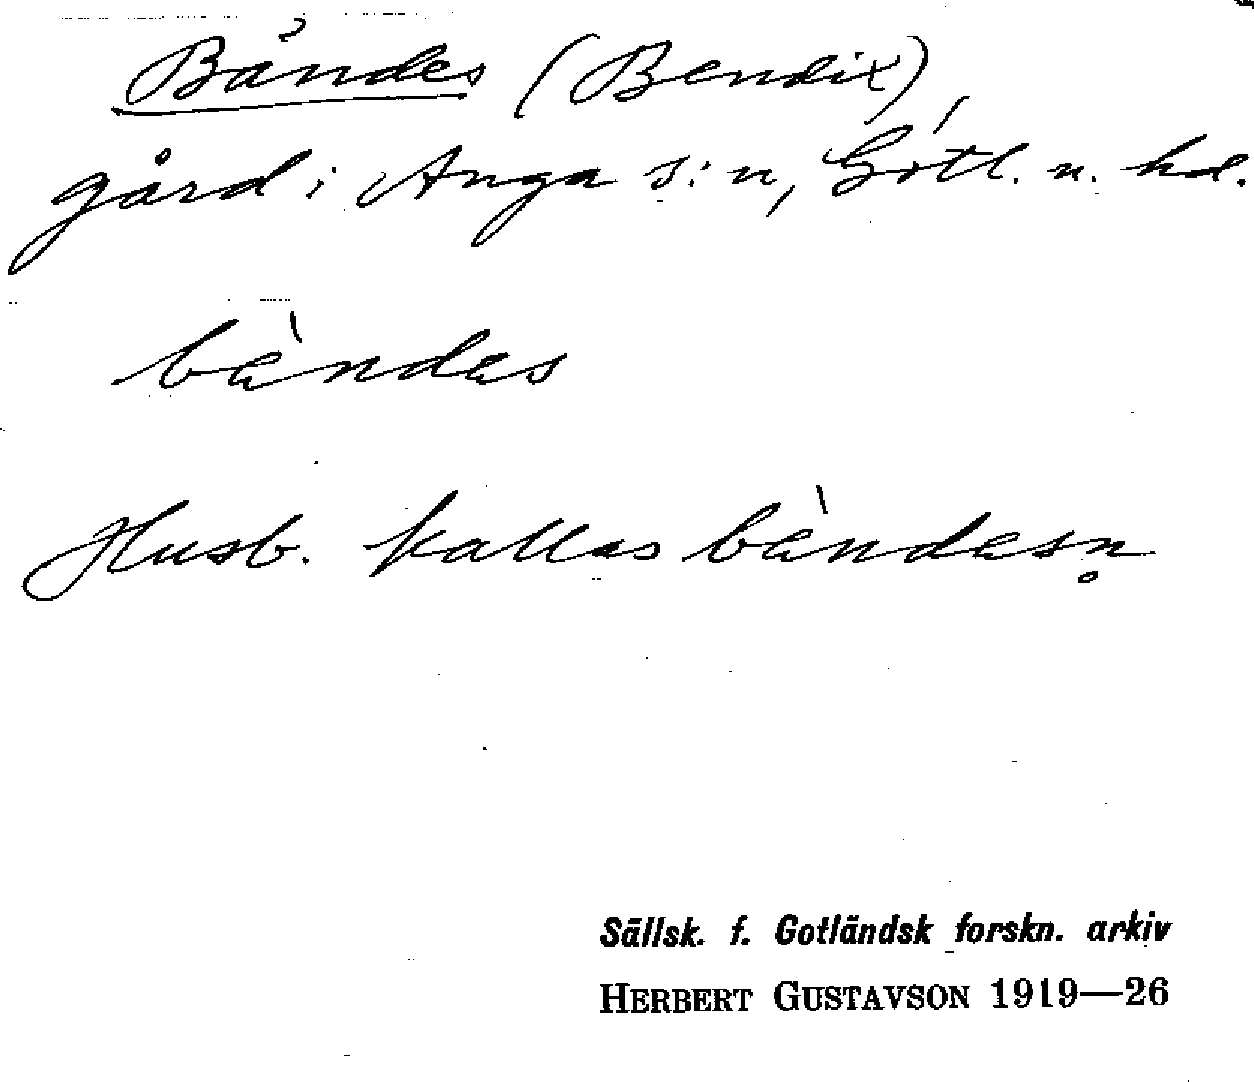 Bändes (Bendix),
gård i Anga s:n, Gotl. n. hd.
bàndas
Husb. kallas bàndasn̥
Sällsk. f. Gotländsk forskn. arkiv
HERBERT GUSTAVSON 1919—26